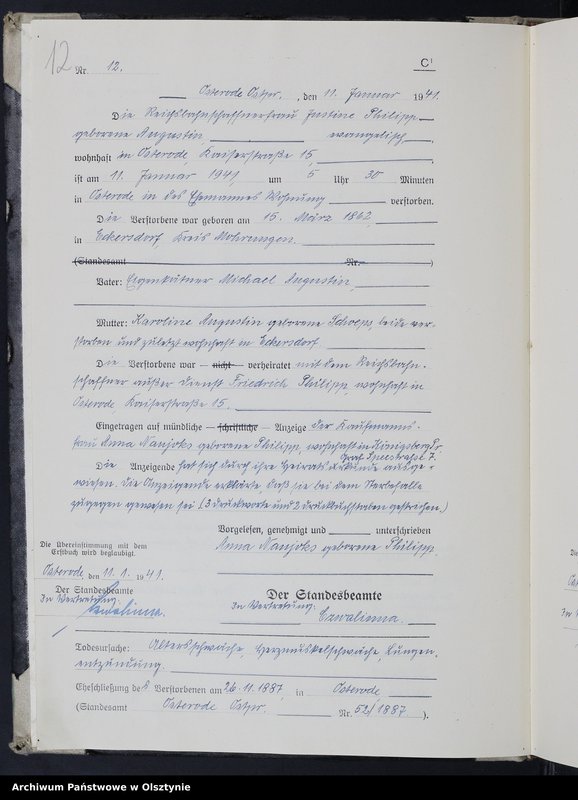 12
Nr. 12. C¹
Osterode Ostpr., den 11. Januar 1941.
Die Reichsbahnschaffnerfrau Justine Philipp
geborene Augustin evangelisch,
wohnhaft in Osterode, Kaiserstraße 15,
ist am 11. Januar 1941, um 5 Uhr 30 Minuten
in Osterode in des Ehemannes Wohnung verstorben.
Die Verstorbene war geboren am 15. März 1862,
in Eckersdorf, Kreis Mohrungen.
(Standesamt Nr. )
Vater: Eigenkätner Michael Augustin,
Mutter: Karoline Augustin geborene Schoeps, beide ver-
storben und zuletzt wohnhaft in Eckersdorf
Die Verstorbene war — nicht — verheiratet mit dem Reichsbahn-
schaffner außer Dienst Friedrich Philipp, wohnhaft in
Osterode, Kaiserstraße 15.
Eingetragen auf mündliche — schriftliche — Anzeige der Kaufmanns-
frau Anna Naujoks geborene Philipp, wohnhaft in Königsberg Pr.
Graf Speestraße 7.
Die Anzeigende hat sich durch ihre Heiratsurkunde ausge-
wiesen. Die Anzeigende erklärte, daß sie bei dem Sterbefalle
zugegen gewesen sei (3 Druckworte und 2 Druckbuchstaben gestrichen.)
Vorgelesen, genehmigt und unterschrieben
Anna Naujoks geborene Philipp,
Die Übereinstimmung mit dem
Erstbuch wird beglaubigt.
Osterode, den 11. 1. 1941.
Der Standesbeamte
In Vertretung:
Czwalinna.
Der Standesbeamte
In Vertretung:
Czwalinna.
Todesursache: Altersschwäche, Herzmuskelschwäche, Lungen-
entzündung.
Eheschließung der Verstorbenen am 26. 11. 1887, in Osterode,
(Standesamt Osterode Ostpr. Nr. 52/1887 ).
Archiwum Państwowe w Olsztynie